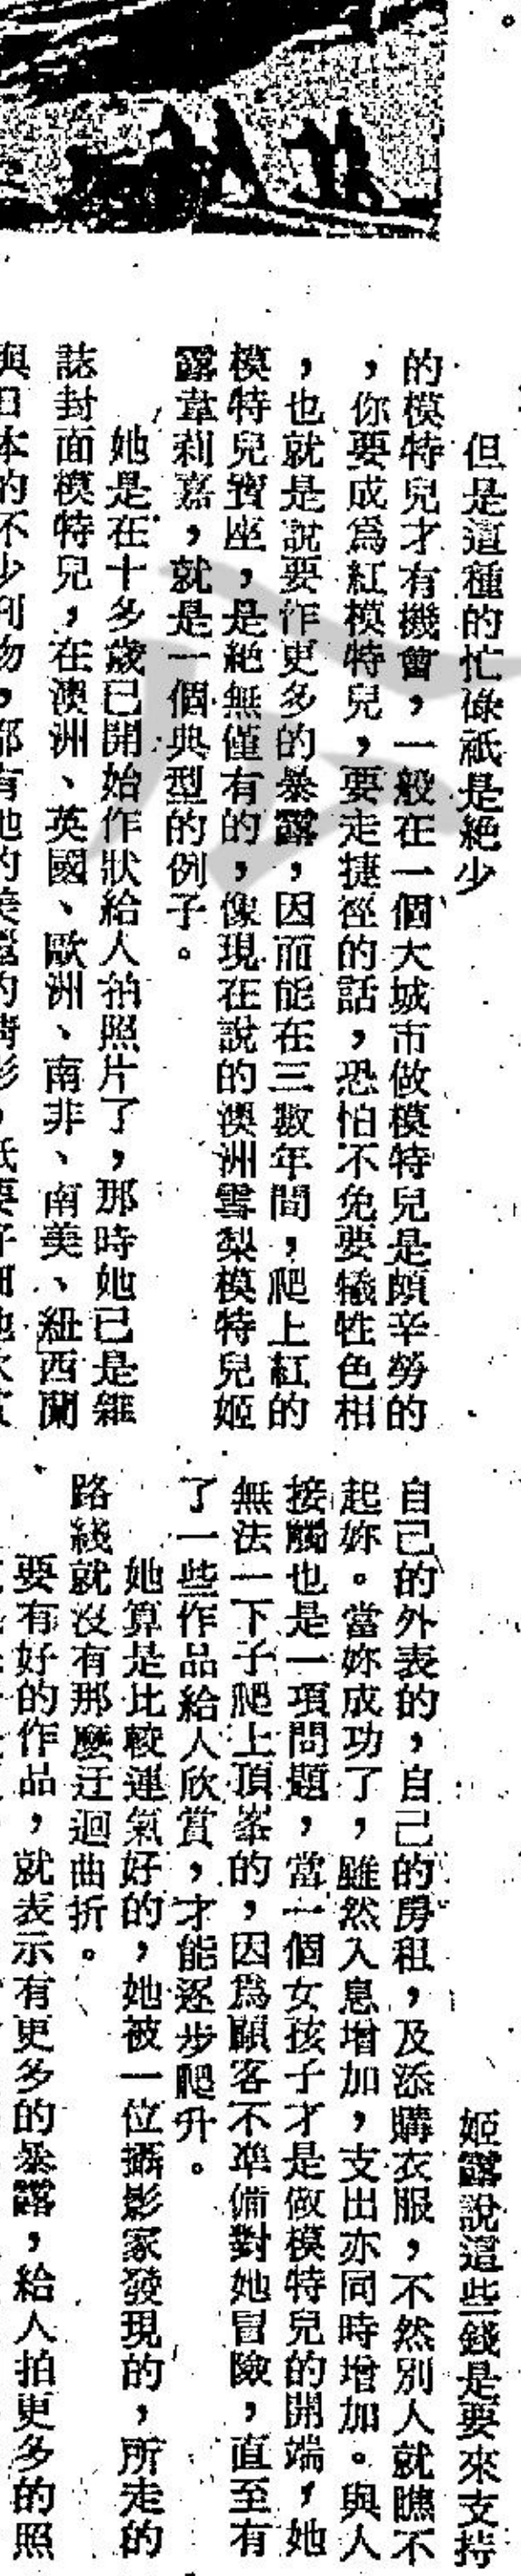 但是這種的忙碌祇是絶少
的模特兒才有機會，一般在一個大城市做模特兒是頗辛勞的
，你要成爲紅模特兒，要走捷徑的話，恐怕不免要犠牲色相
，也就是說要作更多的暴露，因而能在三數年間，爬上紅的
模特兒寶座，是絶無僅有的，像現在說的澳洲雪梨模特兒姬
露韋莉嘉，就是一個典型的例子。
她是在十多歲已開始作狀給人拍照片了，那時她已是雜
誌封面模特兒，在澳洲、英國、歐洲、南非、南美、紐西蘭
與日本的不少刋物，都有她的美
姬露說這些錢是要來支持
自己的外表的，自己的房租，及添購衣服，不然別人就瞧不
起妳。當妳成功了，雖然入息增加，支出亦同時增加。與人
接觸也是一項問題，當一個女孩子才是做模特兒的開端，她
無法一下子爬上頂峯的，因爲顧客不準備對她冒險，直至有
了一些作品給人欣賞，才能逐步爬升。
她算是比較運氣好的，她被一位攝影家發現的，所走的
路綫就沒有那麽迂迴曲折。
要有好的作品，就表示有更多的暴露，給人拍更多的照